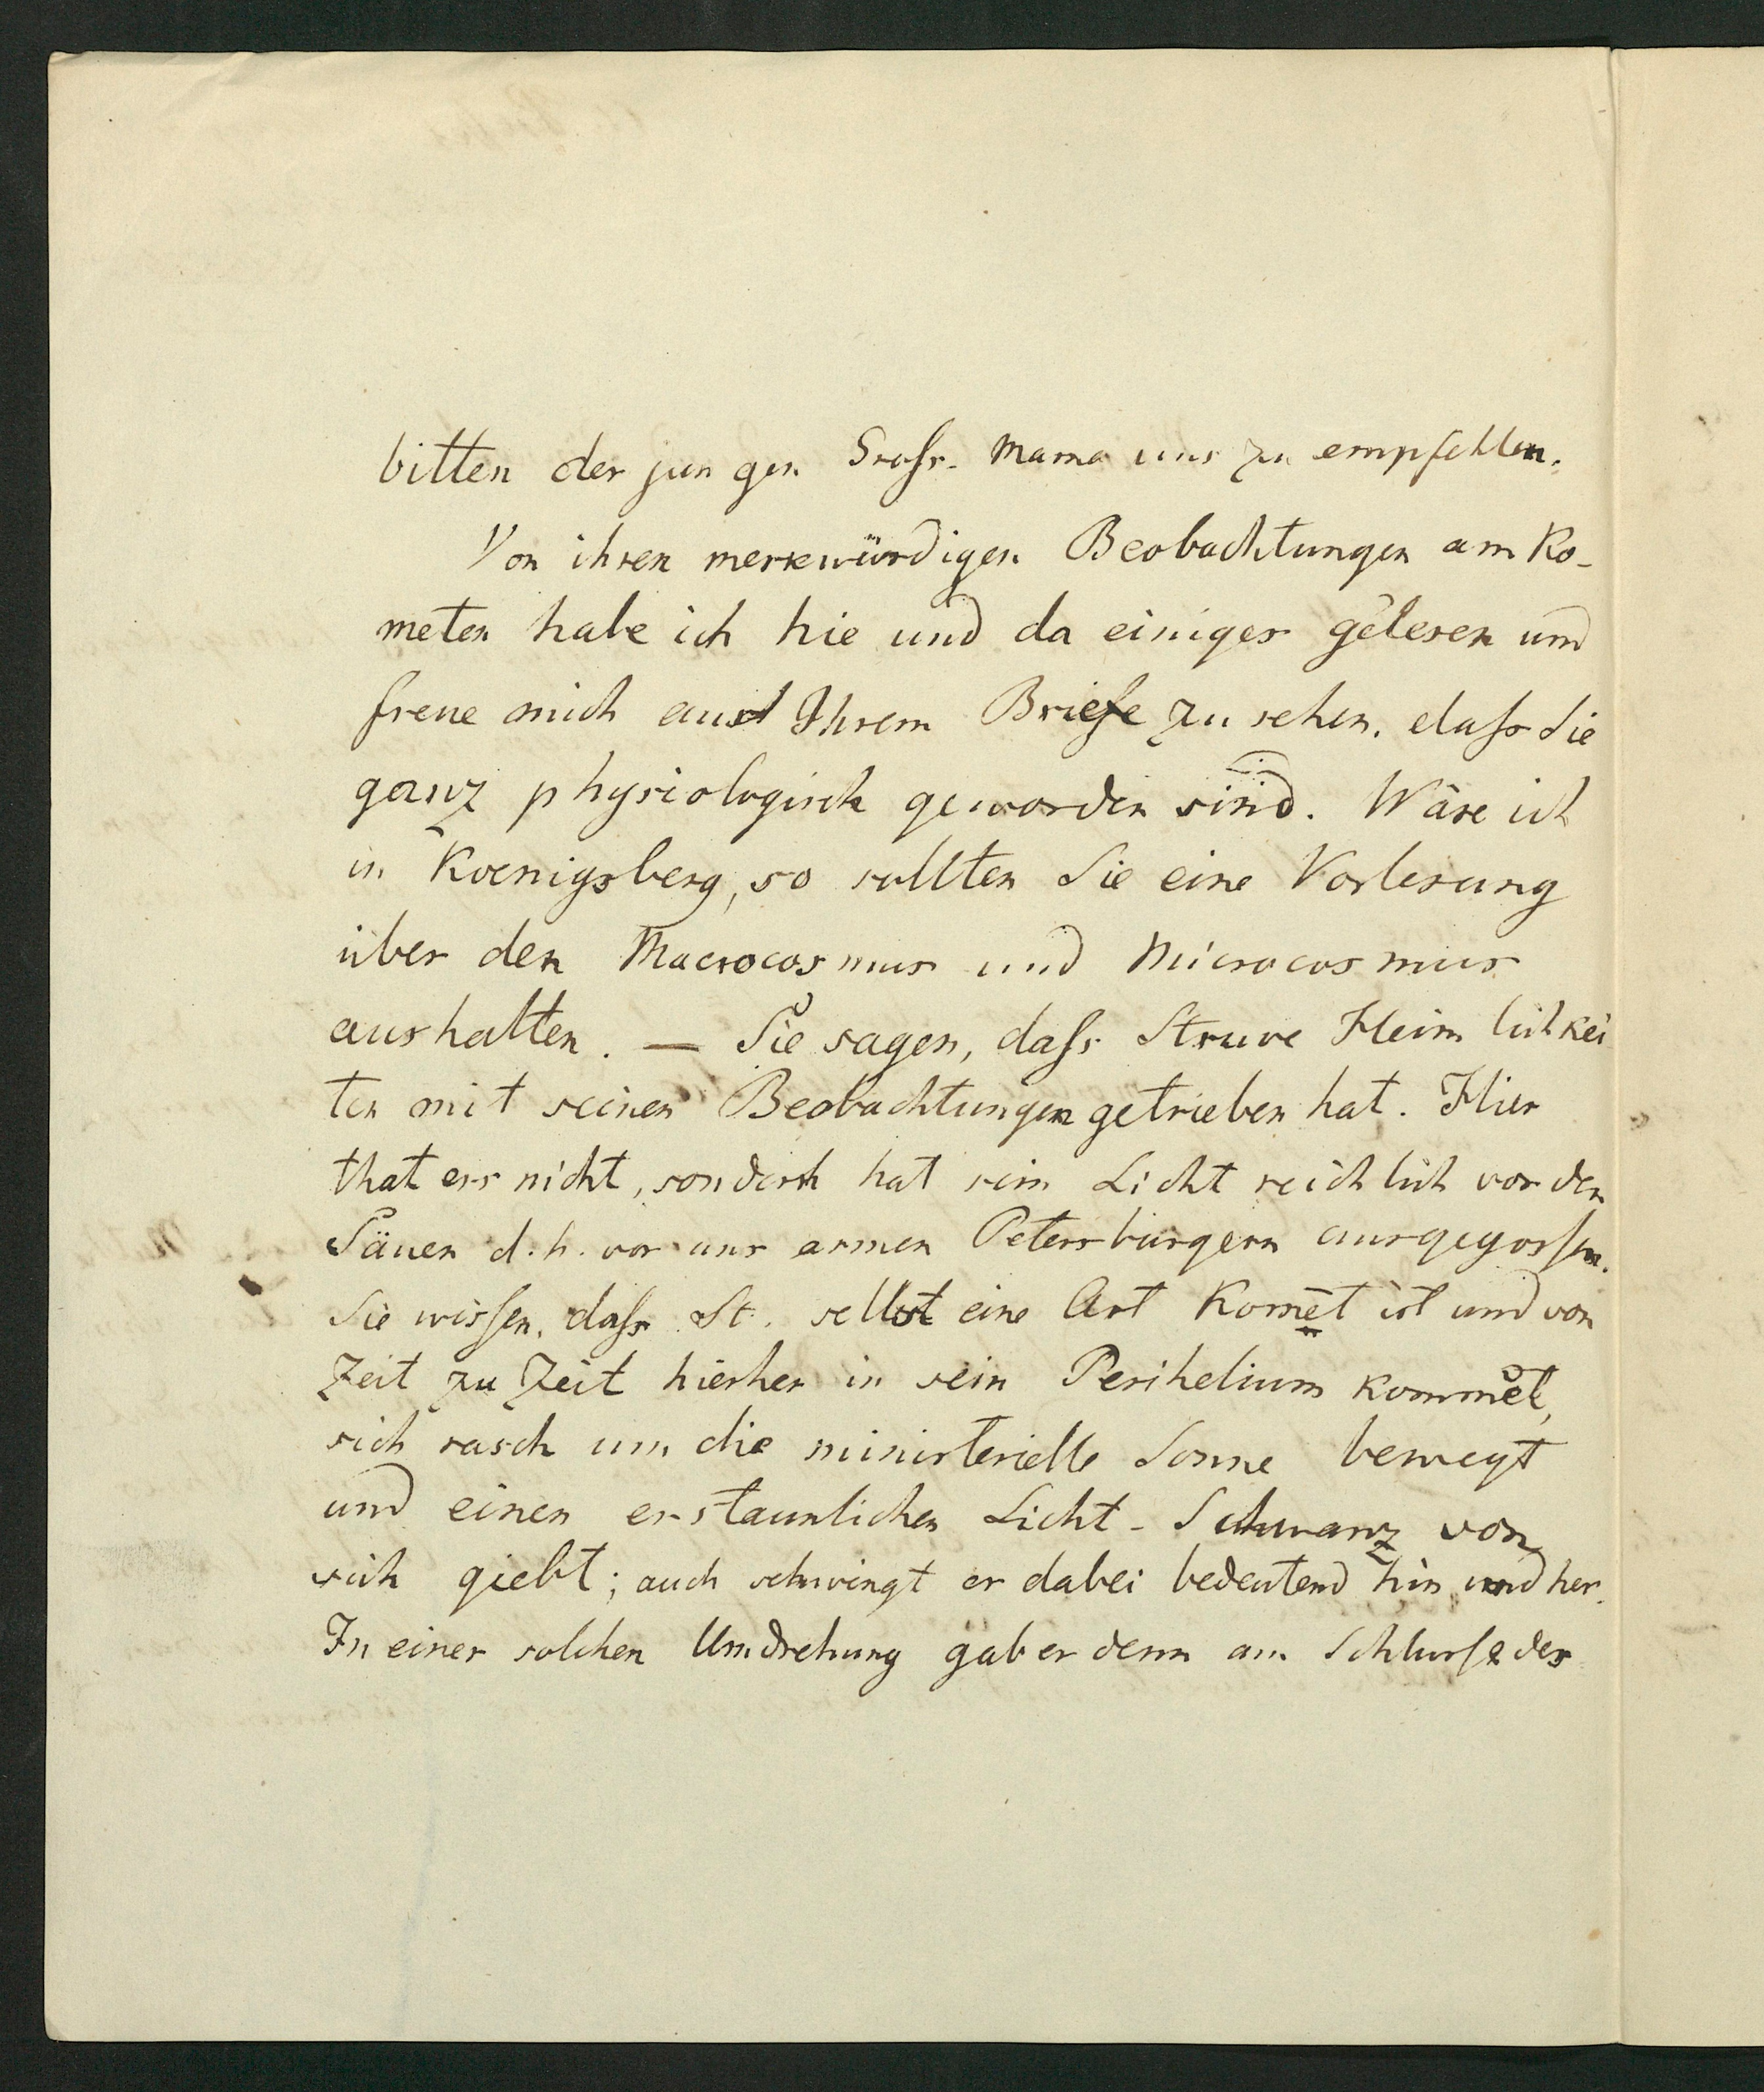 bitten der jungen Gross-Mama uns zu empfehlen.
Von ihren merkwürdigen Beobachtungen am Ko-
meten habe ich hie und da einiges gelesen und
freue mich aus Ihrem Briefe zu sehen, dass Sie
ganz physiologisch geworden sind. Wäre ich
in Koenigsberg, so sollten Sie eine Vorlesung
über den Macrocosmus und Microcosmus
aushalten. — Sie sagen, dass Struve Heimlichkei
ten mit seinen Beobachtungen getrieben hat. Hier
that ers nicht, sondern hat sein Licht reichlich vor den
Säuen d. h. vor uns armen Petersburgern ausgegossen.
Sie wissen, dass St. selbst eine Art Komet ist und von
Zeit zu Zeit hierher in sein Perihelium kommet,
sich rasch um die ministerielle Sonne bewegt
und einen erstaunlichen Licht-Schwanz von
sich giebt; auch schwingt er dabei bedeutend hin und her.
In einer solchen Umdrehung gab er denn am Schlusse des